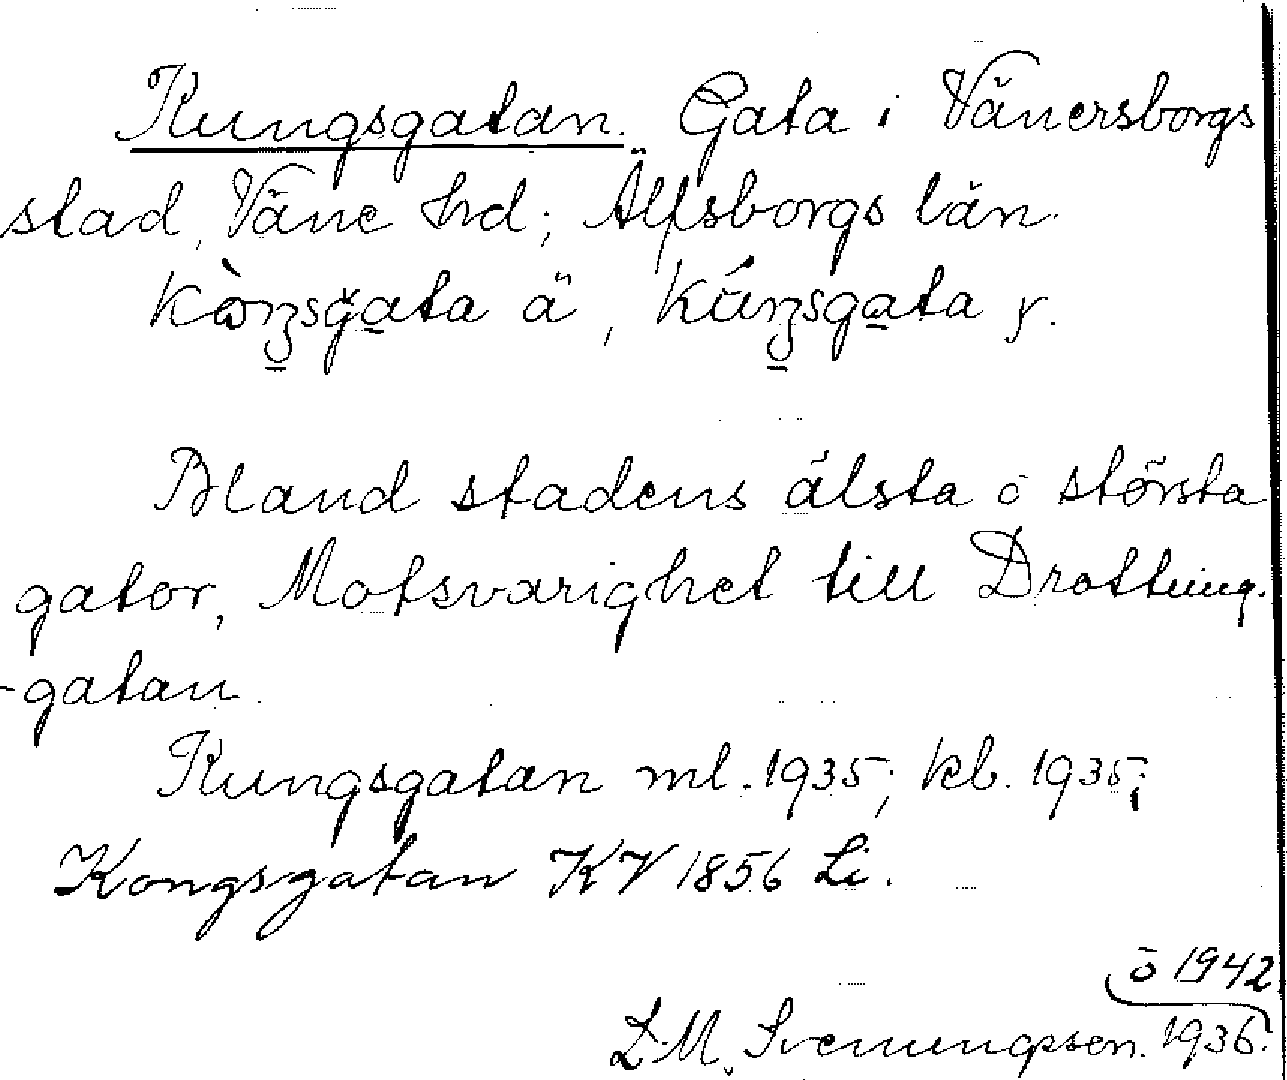 Kungsgatan. Gata i Vänersborgs
stad, Väne hrd; Älfsborgs län.
ä, y.
Bland stadens älsta o största
gator, Motsvarighet till Drottning-
-gatan.
Kungsgatan ml. 1935; kb. 1935;
Kongsgatan KV 1856 Li.
ö 1942
L.M. Svenungsson. 1936.